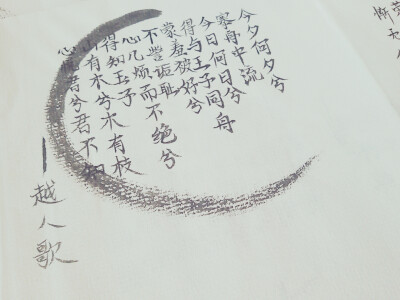 今夕何夕兮
搴舟中流
今日何日兮
得与王子同舟
蒙羞被好兮
不訾诟耻
心几烦而不绝兮
得知王子
山有木兮木有枝
心悦君兮君不知
—越人歌